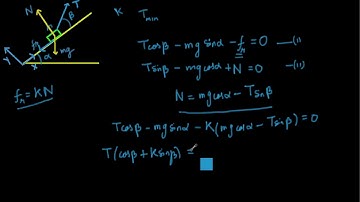 N
T
β
K T_min
fᵣ
mg
α
y
x
Tcosβ - mg sinα - fᵣ = 0 —(i)
Tsinβ - mg cosα + N = 0 —(ii)
fᵣ = KN
N = mg cosα - Tsinβ
Tcosβ - mg sinα - K(mg cosα - Tsinβ) = 0
T(cosβ + Ksinβ) =